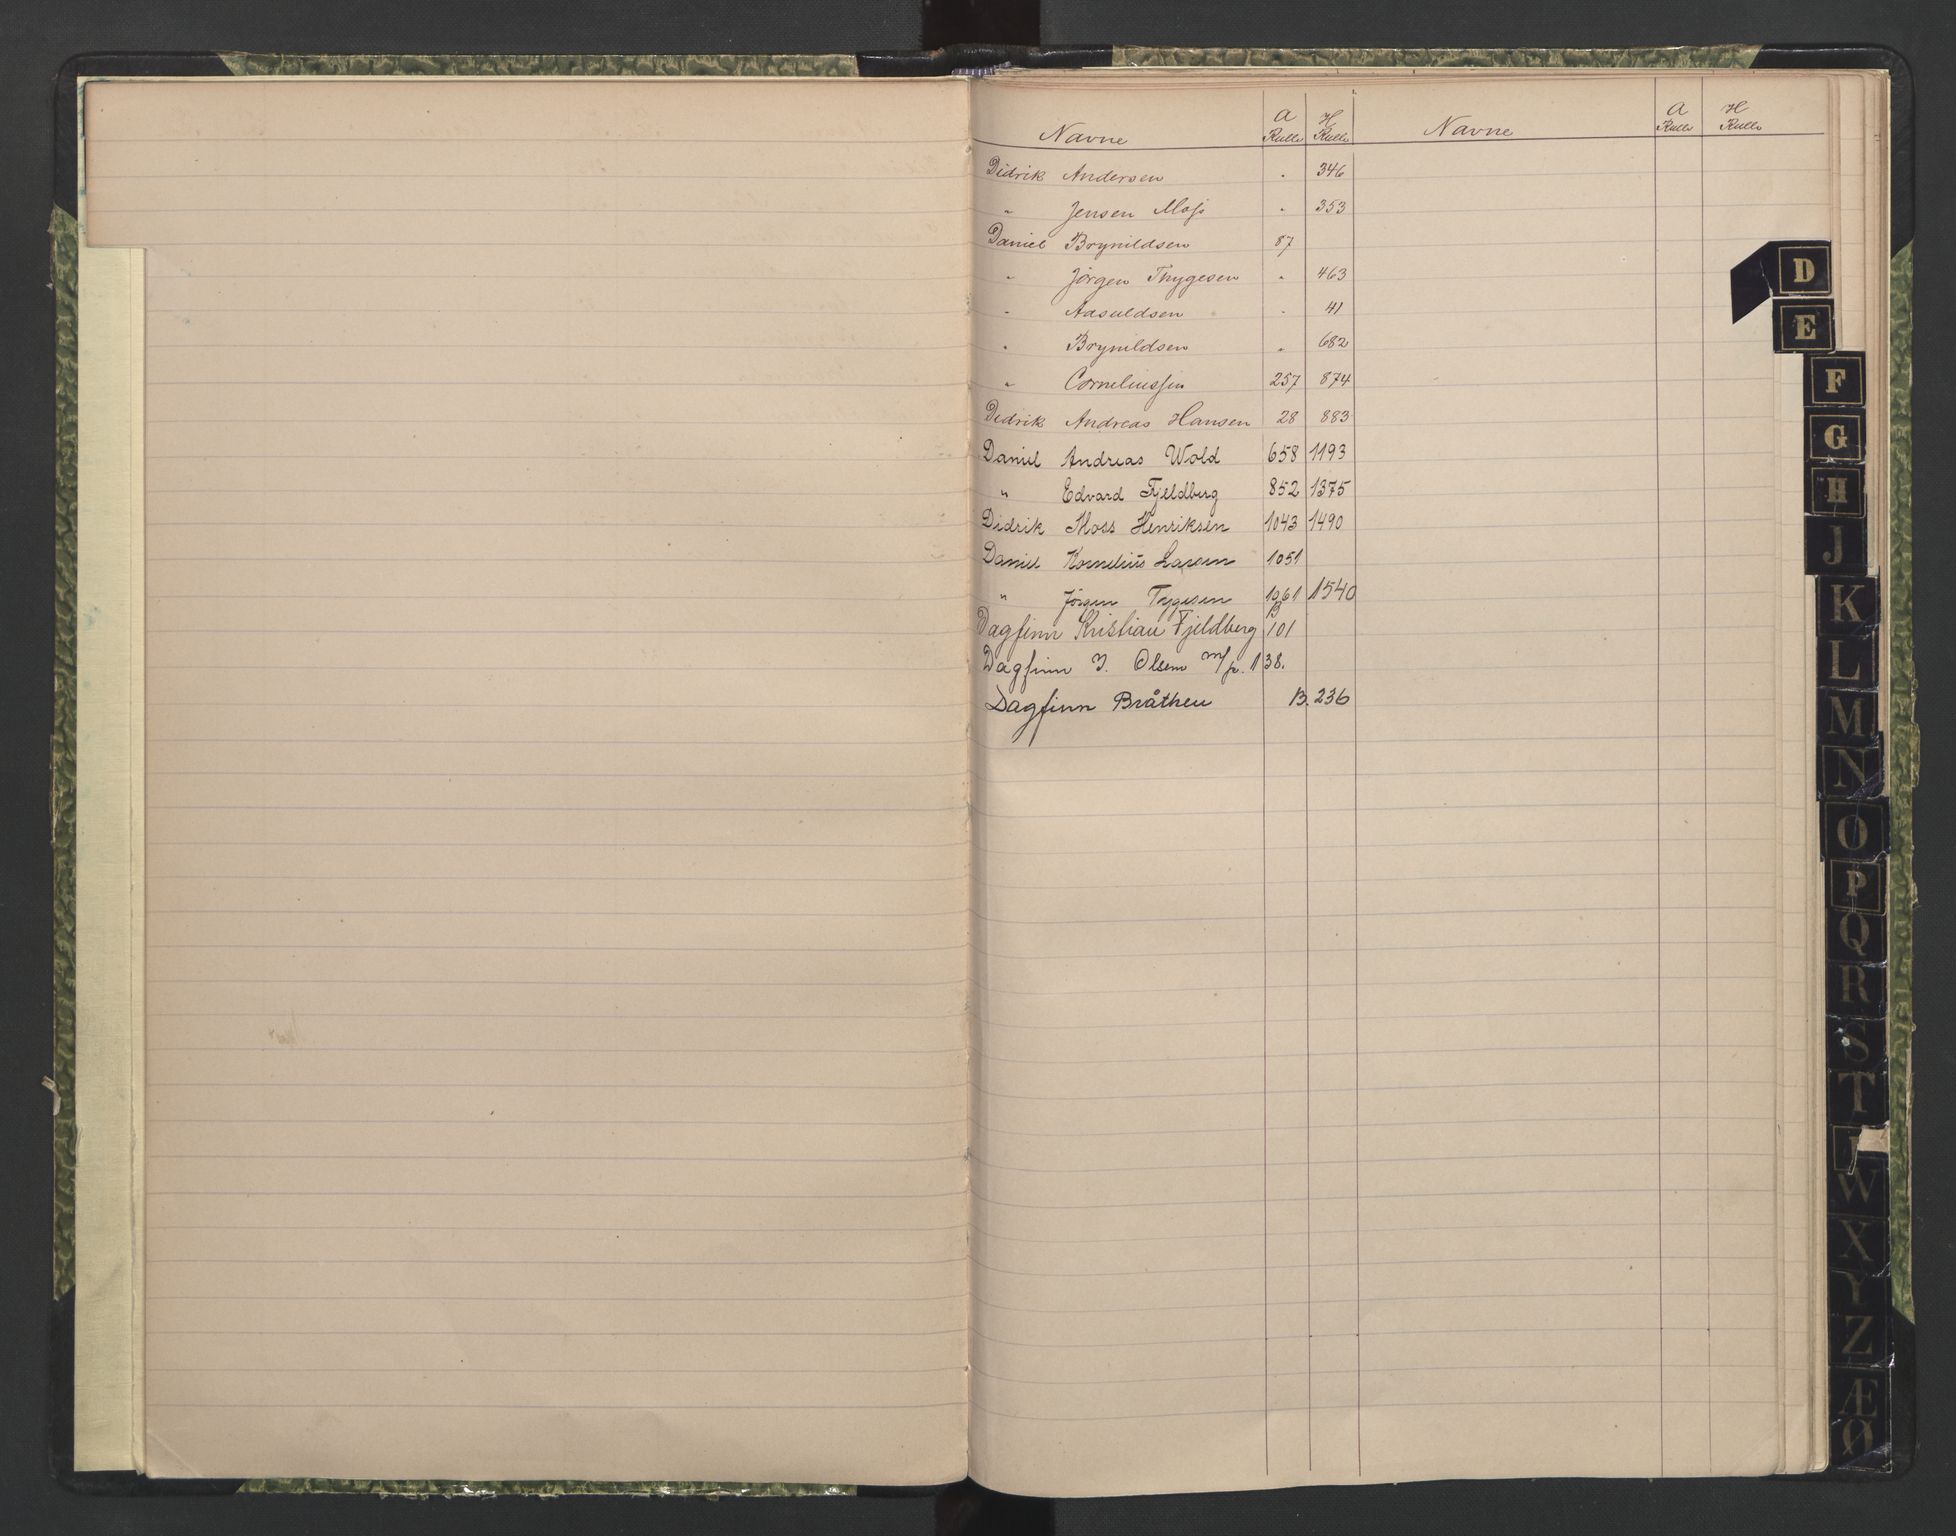 Navne A Rulle H Rulle Navne A Rulle H Rulle
Didrik Andersen " 346
" Jensen Moss " 353
Daniel Brynildsen 87
" Jörgen Thygesen " 463
" Aasuldsen " 41
" Brynildsen " 682
" Corneliussen 257 874
Didrik Andreas Hansen 28 883
Daniel Andreas Wold 658 1193
" Edvard Fjeldberg 852 1375
Didrik Moss Henriksen 1043 1490
Daniel Kornelius Larsen 1051
" Jörgen Tygesen 1061 1540
Dagfinn Kristian Fjeldberg B 101
Dagfinn I. Olsen m/p. 138.
Dagfinn Bråthen B. 236
D
E
F
G
H
J
K
L
M
N
O
P
Q
R
S
T
W
X
Y
Z
Æ
Ø